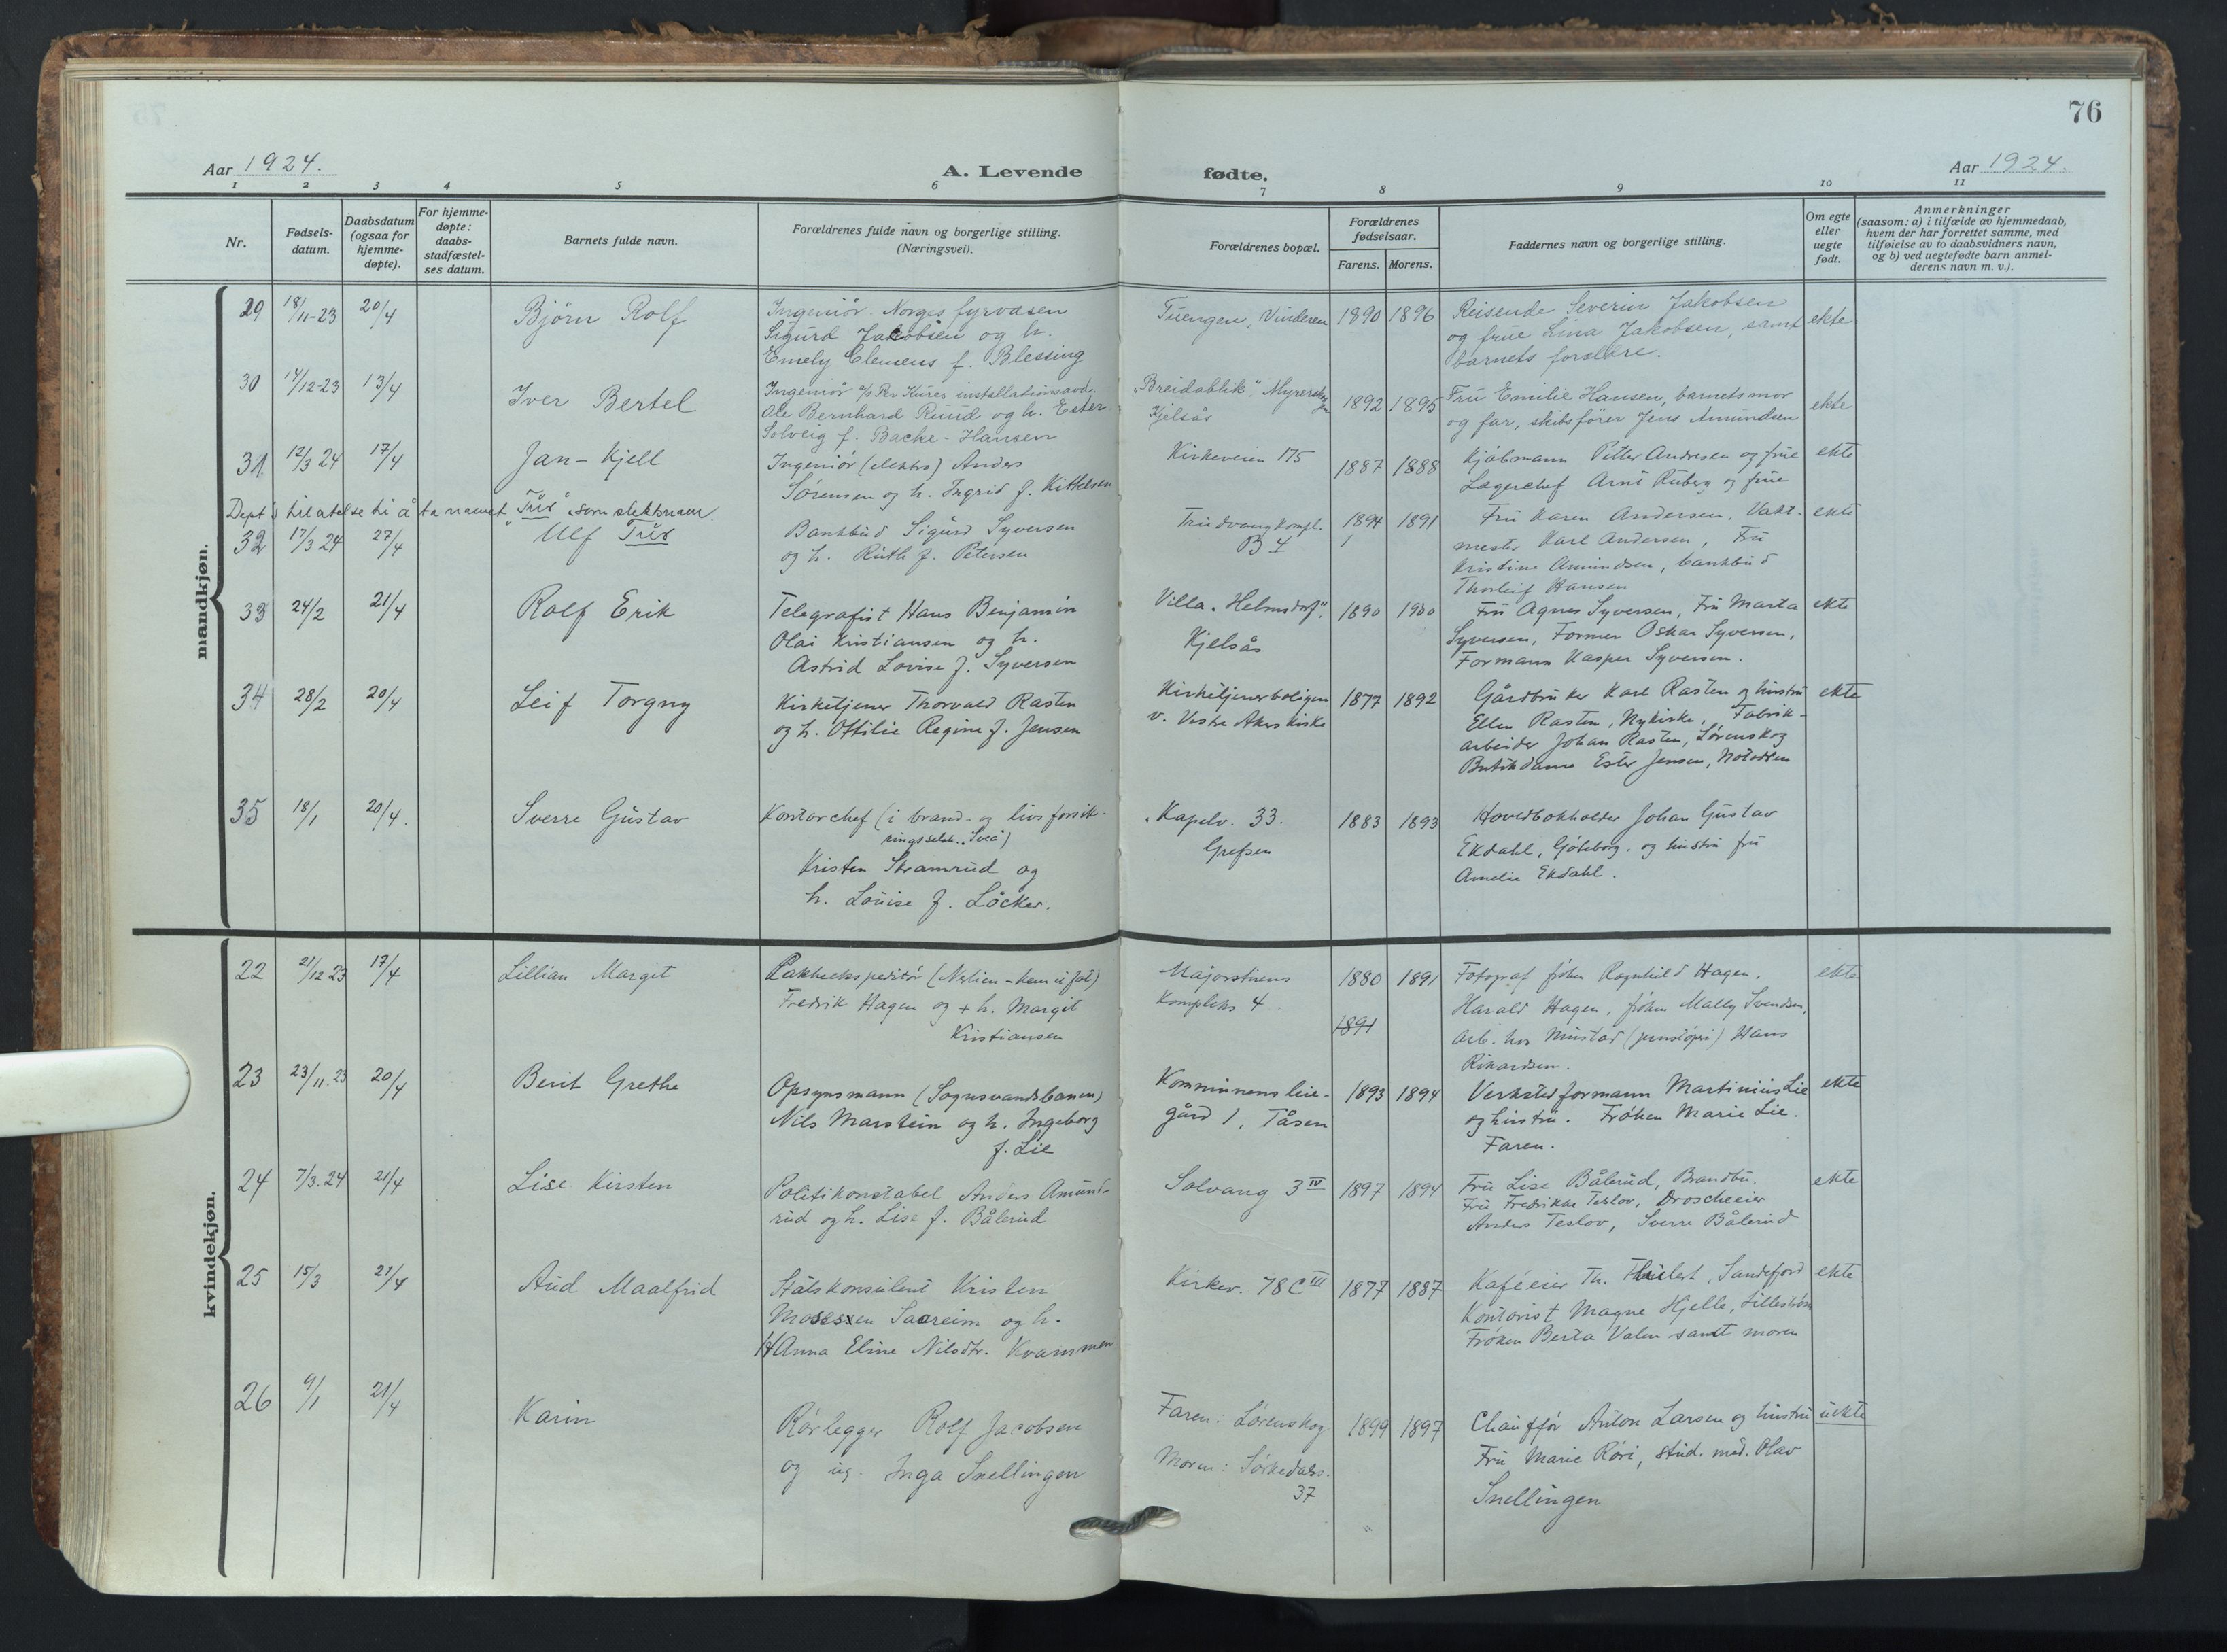 76
Aar 1924.
A. Levende fødte.
Aar 1924.
1 2 3 4 5 6 7 8 9 10 11
Nr.
Fødsels-
datum.
Daabsdatum
(ogsaa for
hjemme-
døpte).
For hjemme-
døpte:
daabs-
stadfæstel-
ses datum.
Barnets fulde navn.
Forældrenes fulde navn og borgerlige stilling.
(Næringsvei).
Forældrenes bopæl.
Forældrenes
fødselsaar.
Farens. Morens.
Faddernes navn og borgerlige stilling.
Om egte
eller
uegte
født.
Anmerkninger
(saasom: a) i tilfælde av hjemmedaab,
hvem der har forrettet samme, med
tilføielse av to daabsvidners navn,
og b) ved uegtefødte barn anmel-
derens navn m. v.).
mandkjøn.
29 18/11-23 20/4 Bjørn Rolf
Ingeniör Norges fyrvæsen
Sigurd Jakobsen og h.
Emely Clemens f. Blessing
Tuengen, Vinderen 1890 1896
Reisende Severin Jakobsen
og frue Lina Jakobsen, samt
barnets forældre.
ekte
30 14/12-23 13/4 Iver Bertel
Ingeniör a/s Per Kures installationsavd.
Ole Bernhard Ruud og h. Ester
Solveig f. Backe-Hansen
"Breidablik",
Kjelsås
1892 1895
Fru Emilie Hansen, barnets mor
og far, skibsfører Jens Amundsen
ekte
31 12/3 24 17/4 Jan-Kjell
Ingeniör (elektro) Anders
Sørensen og h. Ingrid f. Kittelsen
Kirkeveien 175 1887 1888
Kjøbmann Petter Andresen og frue
Lagerchef Arne Ruberg og frue
ekte
Dept's tilatelse til å ta navnet "Tus" som slektsnavn.
32 17/3 24 27/4 Ulf Tus
Bankbud Sigurd Syversen
og h. Ruth f. Petersen
Trudvang kompl.
B
1894 1891
Fru Karen Andersen, Vakt-
mester Karl Andersen, Fru
Kristine Amundsen, bankbud
Thorleif Hansen
ekte
33 24/2 21/4 Rolf Erik
Telegrafist Hans Benjamin
Olai Kristiansen og h.
Astrid Lovise f. Syversen
Villa "Helmsdorf".
Kjelsås
1890 1900
Fru Agnes Syversen, Fru Marta
Syversen, Former Oskar Syversen,
Formann Kasper Syversen.
ekte
34 28/2 20/4 Leif Torgny
Kirketjener Thorvald Rasten
og h. Ottilie Regine f. Jensen
Kirketjenerboligen
v. Vestre Akers kirke
1877 1892
Gårdbruker Karl Rasten og hustru
Ellen Rasten, Nykirke, Fabrik-
arbeider Johan Rasten, Lørenskog
Butikdame Ester Jensen, Notodden
ekte
35 18/1 20/4. Sverre Gustav
Kontorchef (i brand- og livsforsik-
ringsselsk. "Svea")
Kristen Skramrud og
h. Louise f. Löcker.
Kapelv. 33.
Grefsen
1883 1893
Hovedbokholder Johan Gustav
Ekdahl, Göteborg. og hustru fru
Amelie Ekdahl.
kvindekjøn.
22 21/12 23 17/4 Lillian Margit
Pakhusekspeditør
Fredrik Hagen og + h. Margit
Kristiansen
Majorstuens
Kompleks 4.
1880 1891
1891
Fotograf frøken Ragnhild Hagen,
Harald Hagen, frøken Mally Svendsen,
arb. hos Mustad Hans
Rikardsen.
ekte
23 23/11.23 20/4 Berit Grethe
Opsynsmann (Sognsvandsbanen)
Nils Marstein og h. Ingeborg
f. Lie
Kommunens leie-
gård 1, Tåsen
1893 1894
Verkstedformann Martinius Lie
og hustru. Frøken Marie Lie.
Faren.
ekte
24 7/3.24 21/4 Lise Kirsten
Politikonstabel Anders Amund-
rud og h. Lise f. Bålerud
Solvang 3 IV 1897 1894
Fru Lise Bålerud, Brandbu.
Fru Fredrikke Teslov, Droscheeier
Anders Teslov, Sverre Bålerud
ekte
25 15/3 21/4 Aud Maalfrid
Statskonsulent Kristen
Mosessen Saareim og h.
Anna Eline Nilsdtr. Kvammen
Kirkev. 78 C III 1877 1887
Kaféeier Th. Sandefjord
Kontorist Magne Hjelle, Lillestrøm
Frøken Berta Valen samt moren
ekte
26 9/1 21/4 Karin
Rørlegger Rolf Jacobsen
og ug. Inga Snellingen
Faren: Lørenskog
Moren: Sørkedalsv.
37
1899 1897
Chauffør Anton Larsen og hustru
Fru Marie Röri, stud. med. Olav
Snellingen
uekte